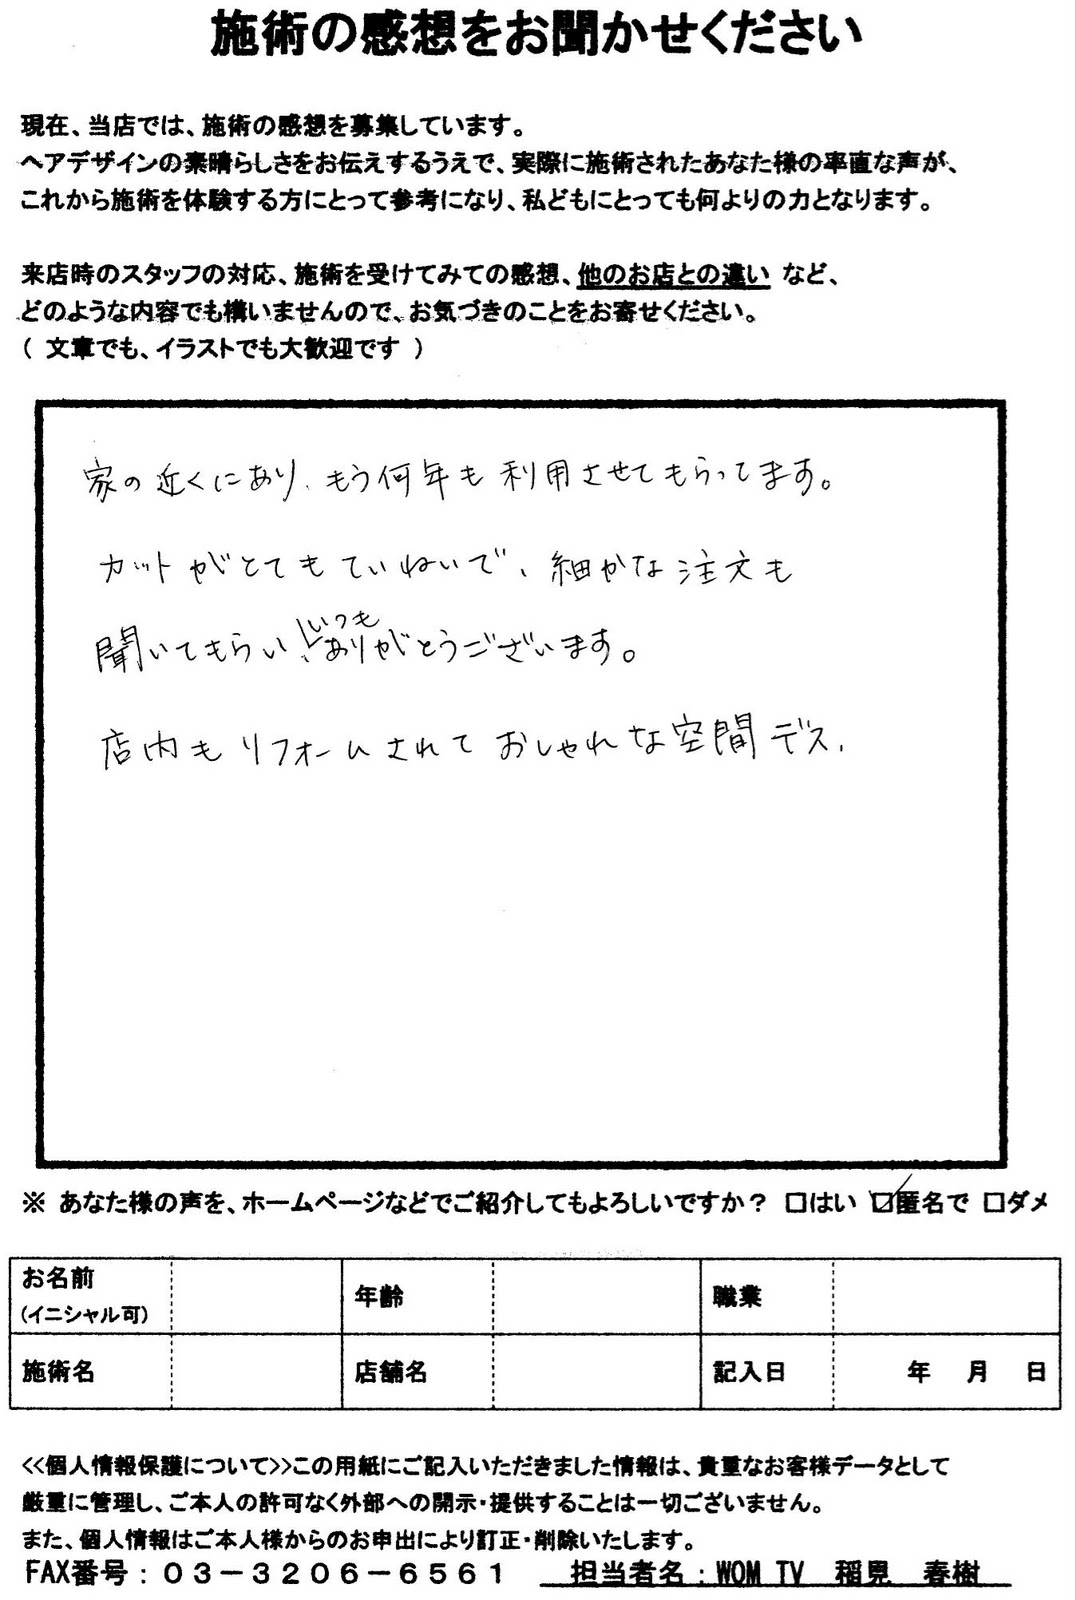 施術の感想をお聞かせください
現在、当店では、施術の感想を募集しています。
ヘアデザインの素晴らしさをお伝えするうえで、実際に施術されたあなた様の率直な声が、
これから施術を体験する方にとって参考になり、私どもにとっても何よりの力となります。
来店時のスタッフの対応、施術を受けてみての感想、他のお店との違い など、
どのような内容でも構いませんので、お気づきのことをお寄せください。
( 文章でも、イラストでも大歓迎です )
家の近くにあり、もう何年も利用させてもらってます。
カットがとてもていねいで、細かな注文も
聞いてもらい、いつもありがとうございます。
店内もリフォームされておしゃれな空間デス、
※ あなた様の声を、ホームページなどでご紹介してもよろしいですか? □はい ☑匿名で □ダメ
お名前 年齢 職業
(イニシャル可)
施術名 店舗名 記入日 年 月 日
<<個人情報保護について>>この用紙にご記入いただきました情報は、貴重なお客様データとして
厳重に管理し、ご本人の許可なく外部への開示・提供することは一切ございません。
また、個人情報はご本人様からのお申出により訂正・削除いたします。
FAX番号:03-3206-6561 担当者名:WOM TV 稲見 春樹